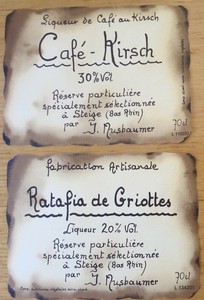 Liqueur de Café au Kirsch
Café-Kirsch
30% Vol.
Réserve particulière
spécialement sélectionnée
à Steige (Bas Rhin)
par J. Nusbaumer
70cl
Fabrication Artisanale
Ratafia de Griottes
Liqueur 20% Vol.
Réserve particulière
spécialement sélectionnée
à Steige (Bas Rhin)
par J. Nusbaumer
70cl